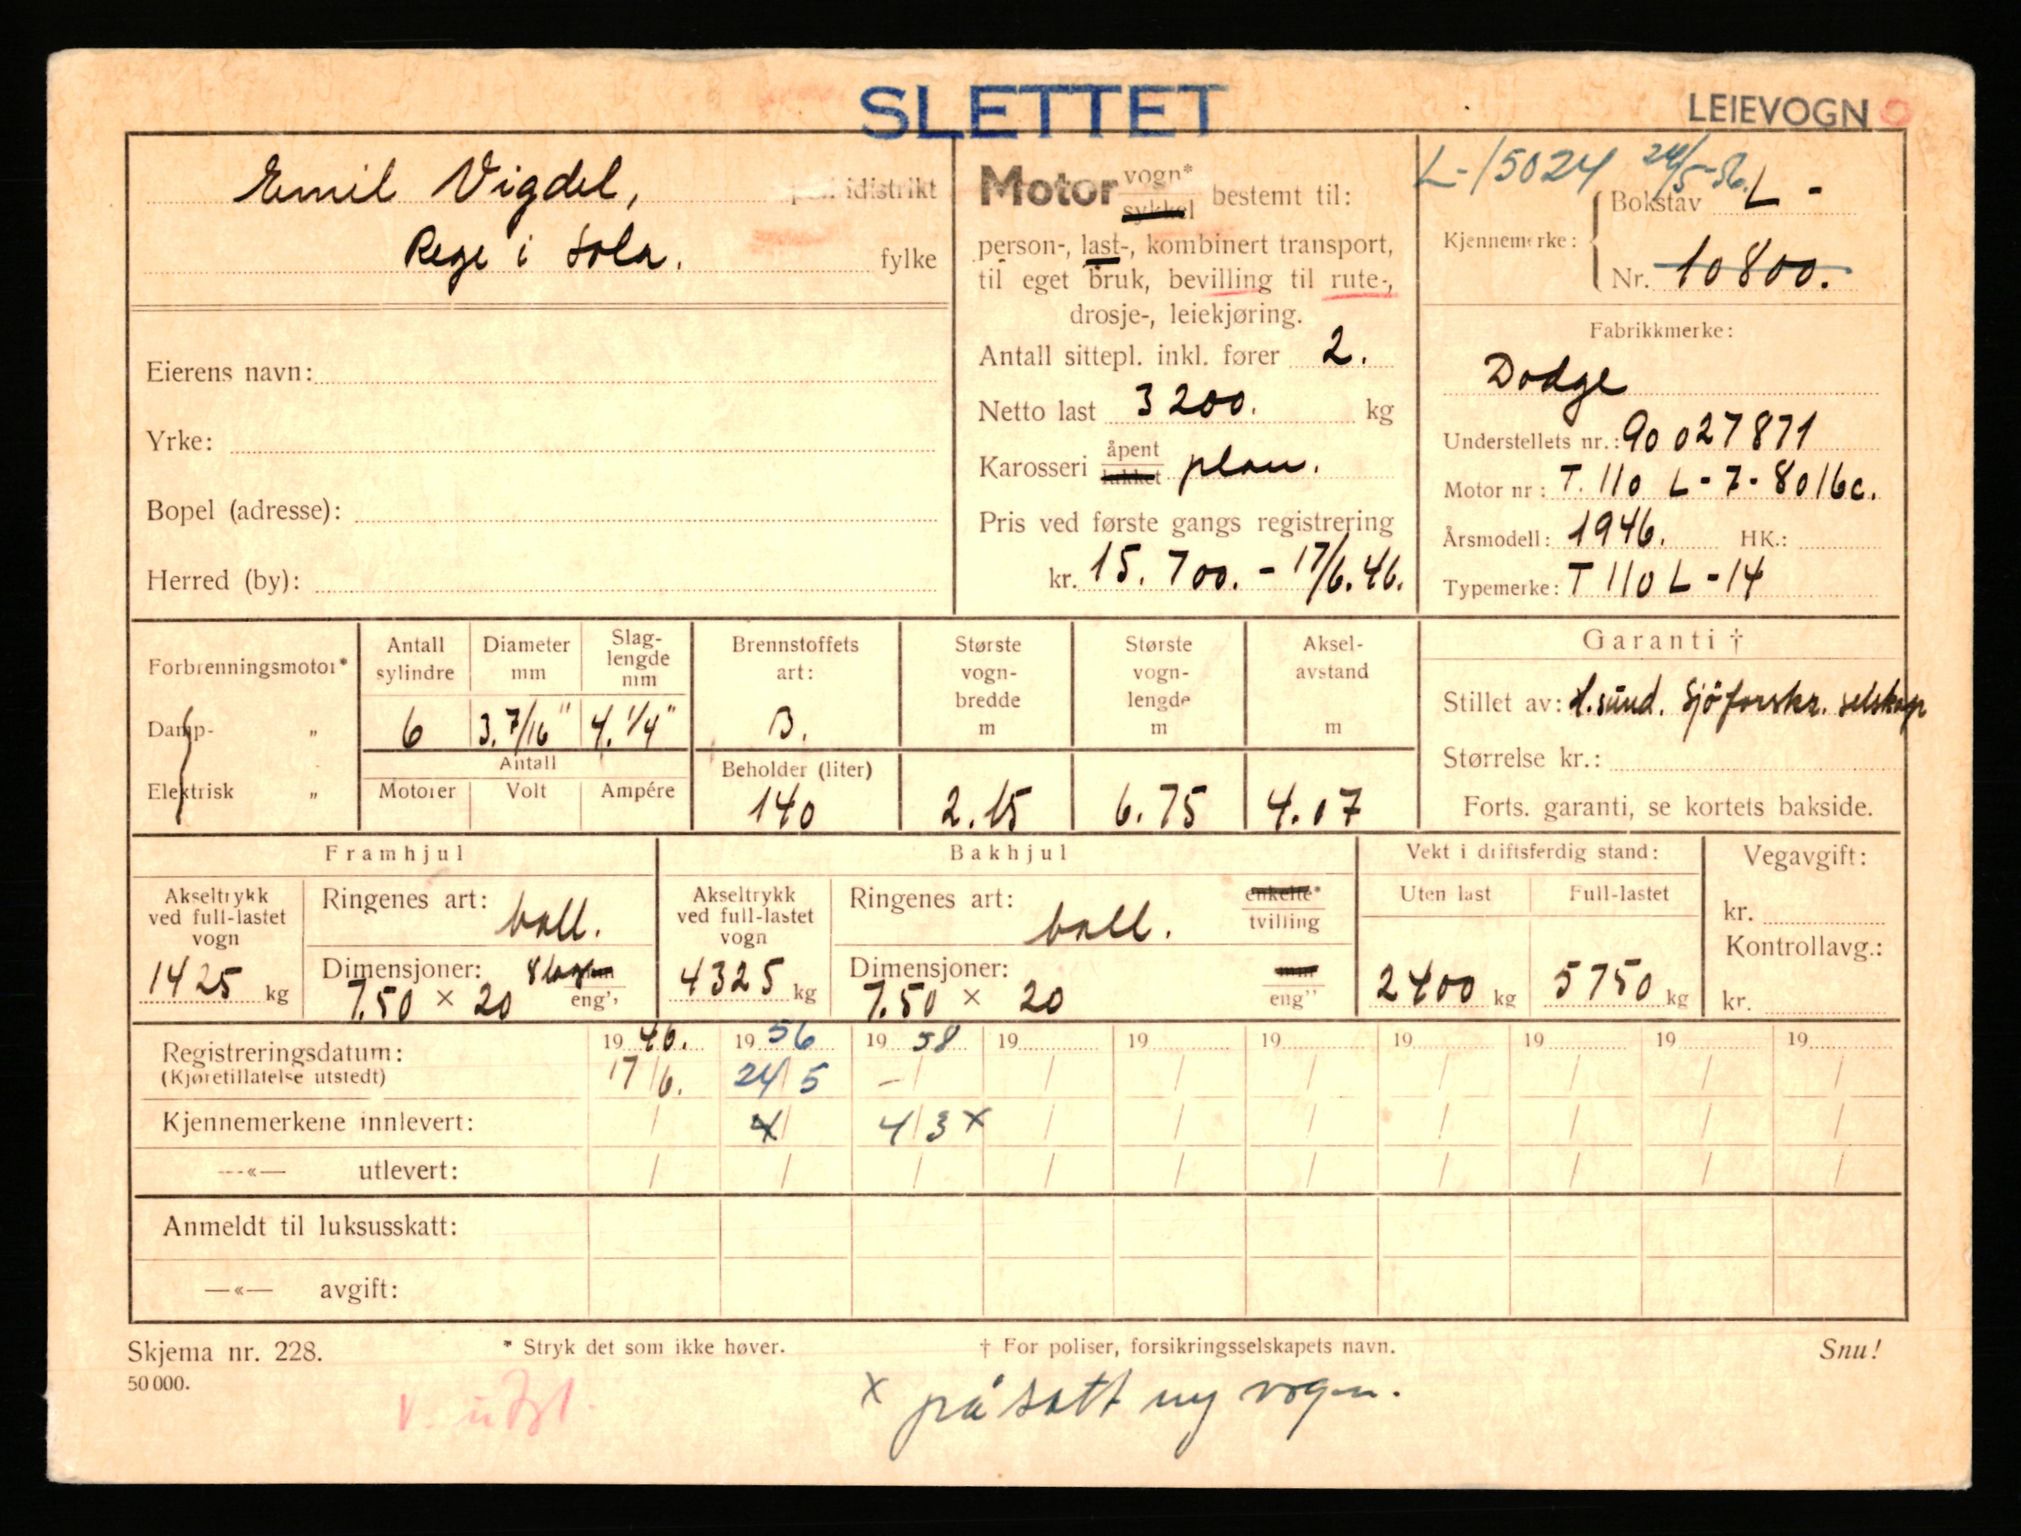 SLETTET
LEIEVOGN
Emil Vigdel, politidistrikt
Rege i Sola. fylke
Eierens navn:
Yrke:
Bopel (adresse):
Herred (by):
Motor vogn* sykkel bestemt til:
person-, last-, kombinert transport,
til eget bruk, bevilling til rute-,
drosje-, leiekjøring.
Antall sittepl. inkl. fører 2.
Netto last 3200. kg
Karosseri åpent lukket plan.
Pris ved første gangs registrering
kr. 15.700.- 17/6.46.
L-15024 24/5-56.
Kjennemerke: Bokstav L -
Nr. 10800.
Fabrikkmerke:
Dodge
Understellets nr.: 90 027871
Motor nr: T.110 L-7-8016c.
Årsmodell: 1946. HK.:
Typemerke: T 110 L-14
Forbrenningsmotor*
Damp- „
Elektrisk „
Antall sylindre
6
Diameter mm
3.7/16"
Slaglengde mm
4.1/4"
Antall
Motorer Volt Ampére
Brennstoffets art:
B.
Beholder (liter)
140
Største vognbredde m
2.15
Største vognlengde m
6.75
Akselavstand m
4.07
Garanti †
Stillet av: H.sund. Sjöforskr. selskap
Størrelse kr.:
Forts. garanti, se kortets bakside.
Framhjul
Akseltrykk
ved full-lastet
vogn
1425 kg
Ringenes art: ball.
Dimensjoner: 7.50 × 20 eng"
Bakhjul
Akseltrykk
ved full-lastet
vogn
4325 kg
Ringenes art: ball. enkelte* tvilling
Dimensjoner: 7.50 × 20 mm eng"
Vekt i driftsferdig stand:
Uten last Full-lastet
2400 kg 5750 kg
Vegavgift:
kr.
Kontrollavg.:
kr.
Registreringsdatum: 1946. 1956 1958 19 19 19 19 19 19 19
(Kjøretillatelse utstedt) 17/6. 24/5 -/ / / / / / / /
Kjennemerkene innlevert: / x/ 4/3 x / / / / / / /
—«— utlevert: / / / / / / / / / /
Anmeldt til luksusskatt:
—«— avgift:
Skjema nr. 228.
* Stryk det som ikke høver.
† For poliser, forsikringsselskapets navn.
Snu!
50 000.
x påsatt ny vogn.